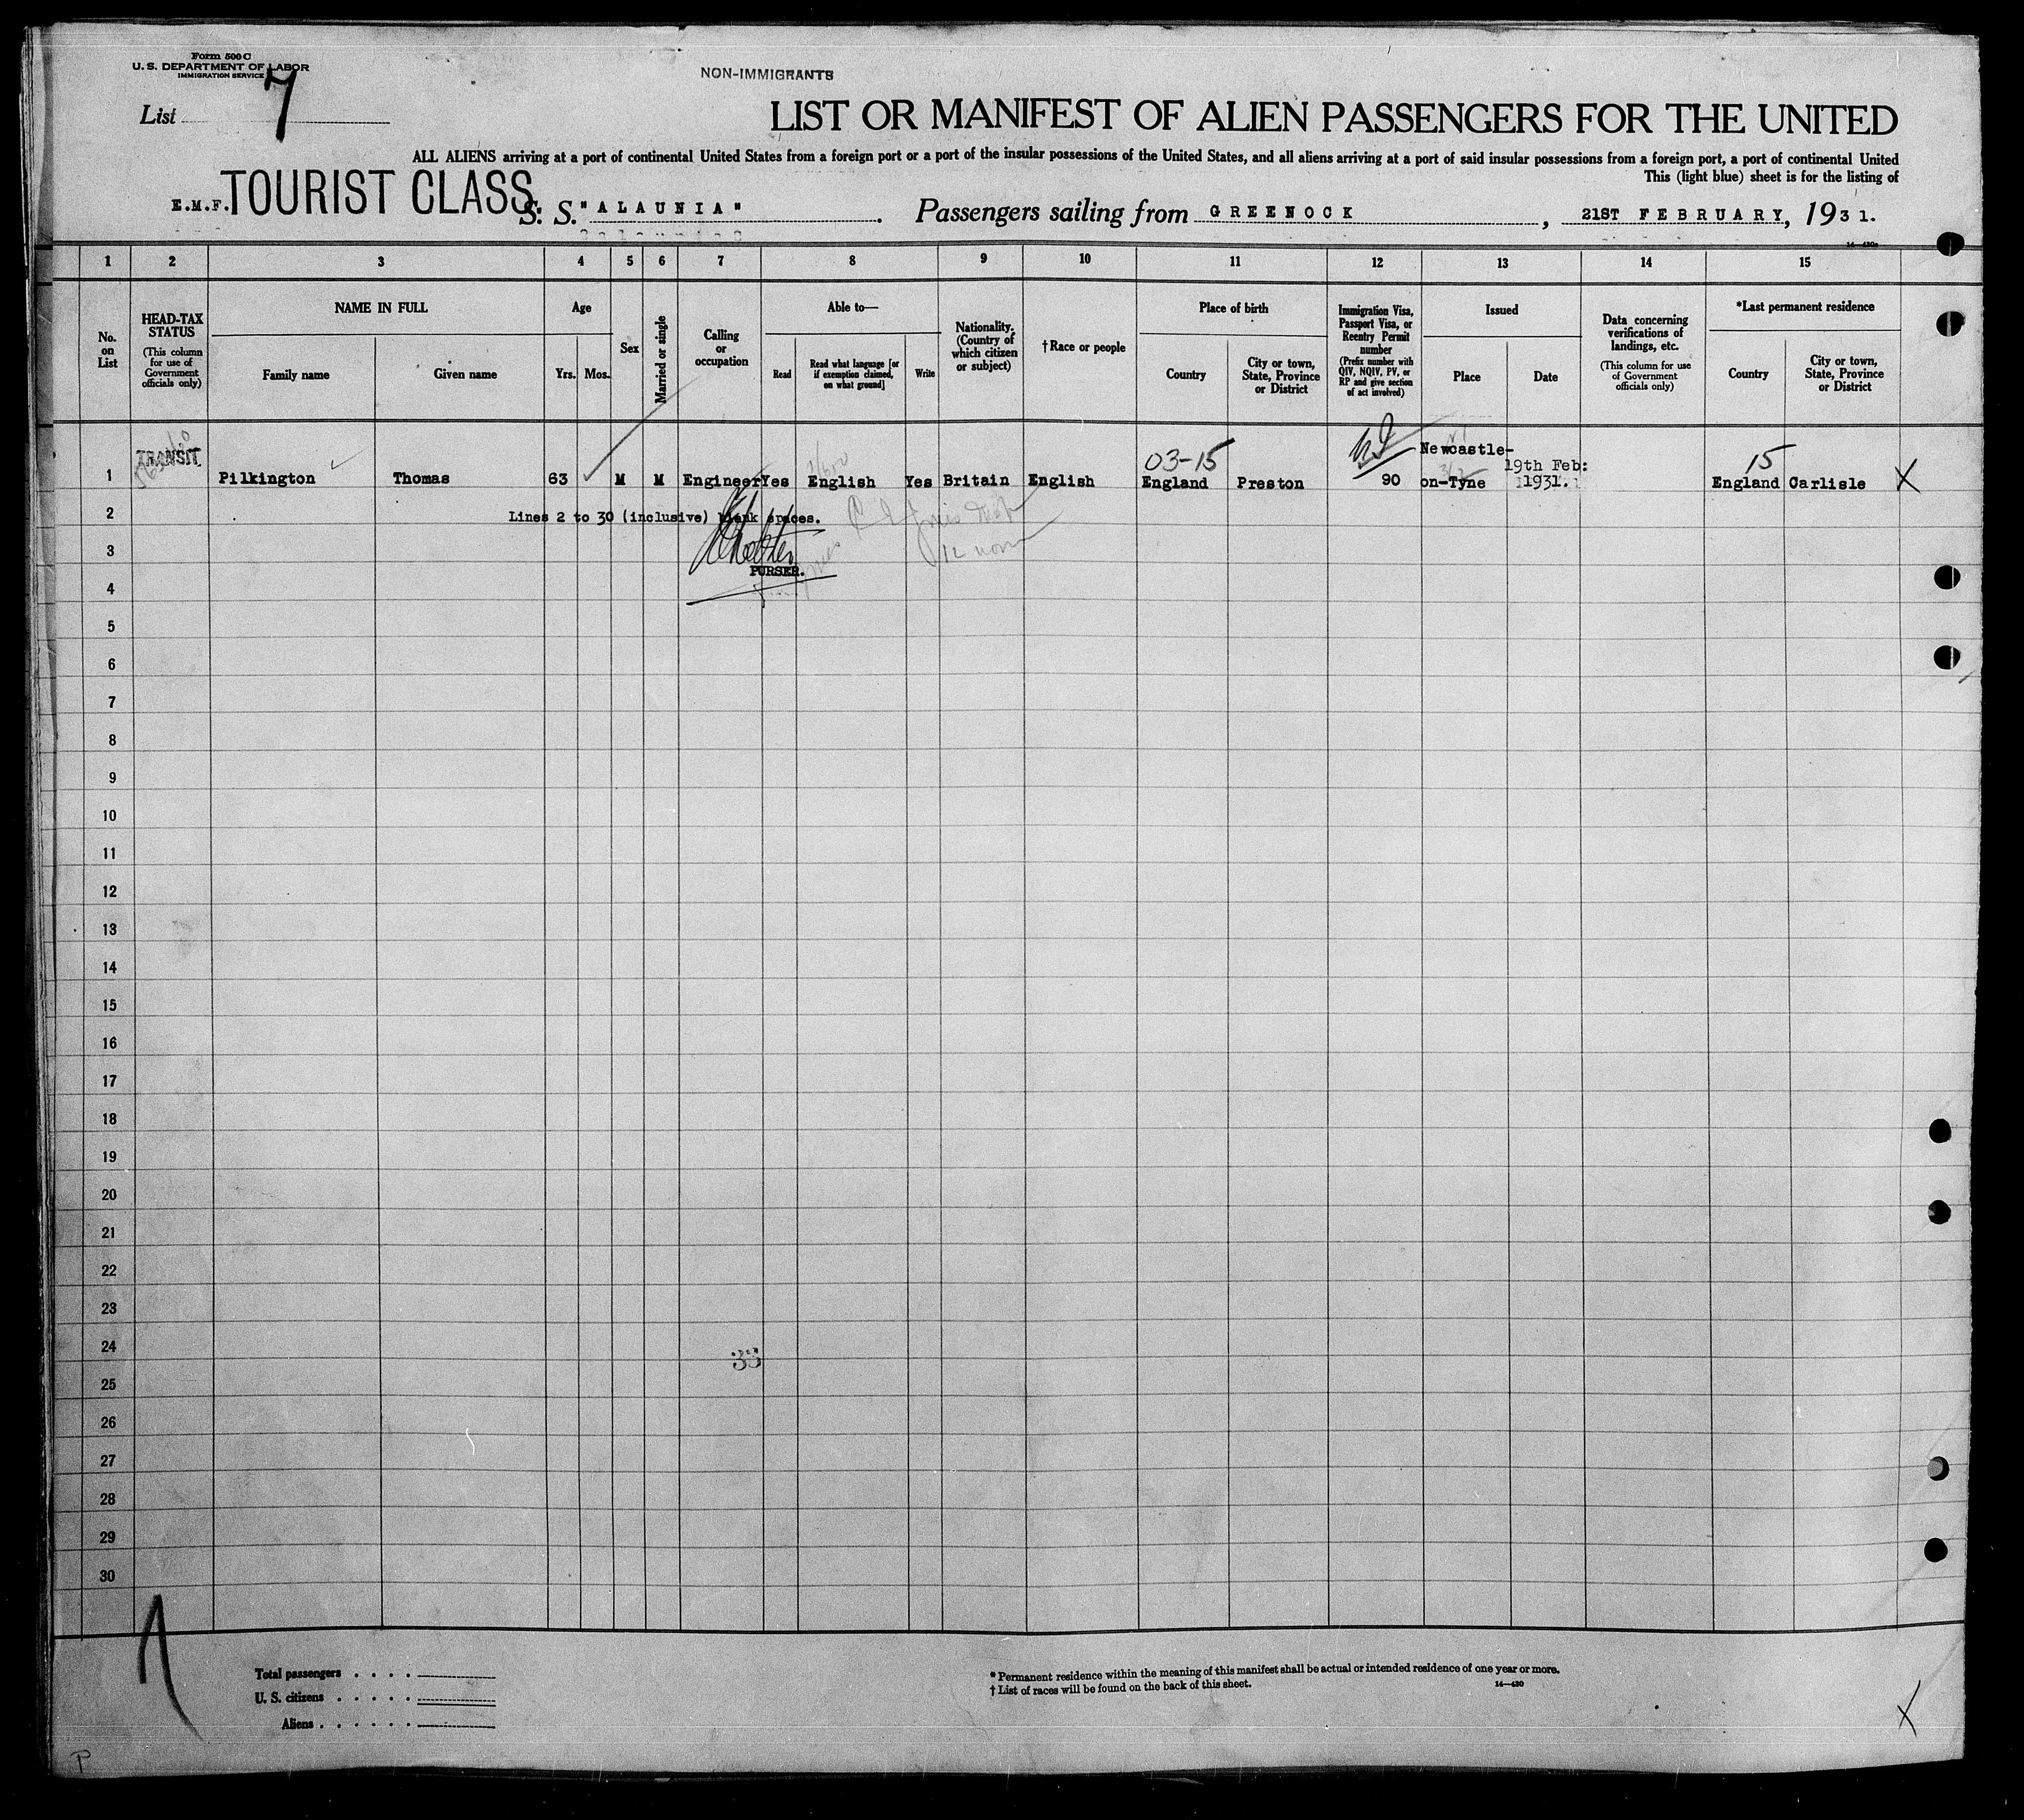 Form 500 C
U. S. DEPARTMENT OF LABOR
IMMIGRATION SERVICE
NON-IMMIGRANTS
List 7
LIST OR MANIFEST OF ALIEN PASSENGERS FOR THE UNITED
ALL ALIENS arriving at a port of continental United States from a foreign port or a port of the insular possessions of the United States, and all aliens arriving at a port of said insular possessions from a foreign port, a port of continental United
This (light blue) sheet is for the listing of
E.M.F. TOURIST CLASS S. S. "ALAUNIA". Passengers sailing from GREENOCK, 21ST FEBRUARY, 1931.
14—430a
1 2 3 4 5 6 7 8 9 10 11 12 13 14 15
No. on List
HEAD-TAX STATUS
(This column for use of Government officials only)
NAME IN FULL
Family name
Given name
Age
Yrs.
Mos.
Sex
Married or single
Calling or occupation
Able to—
Read
Read what language [or if exemption claimed, on what ground]
Write
Nationality. (Country of which citizen or subject)
†Race or people
Place of birth
Country
City or town, State, Province or District
Immigration Visa, Passport Visa, or Reentry Permit number
(Prefix number with QIV, NQIV, PV, or RP and give section of act involved)
Issued
Place
Date
Data concerning verifications of landings, etc.
(This column for use of Government officials only)
*Last permanent residence
Country
City or town, State, Province or District
TRANSIT
03-15
15
1 Pilkington Thomas 63 M M Engineer Yes English Yes Britain English England Preston 90 Newcastle-on-Tyne 19th Feb: 1931. England Carlisle X
2 Lines 2 to 30 (inclusive) blank spaces.
3
PURSER.
4
5
6
7
8
9
10
11
12
13
14
15
16
17
18
19
20
21
22
23
24
33
25
26
27
28
29
30
Total passengers . . . .
U. S. citizens . . . . .
Aliens . . . . . .
* Permanent residence within the meaning of this manifest shall be actual or intended residence of one year or more.
† List of races will be found on the back of this sheet.
14—430
X
P